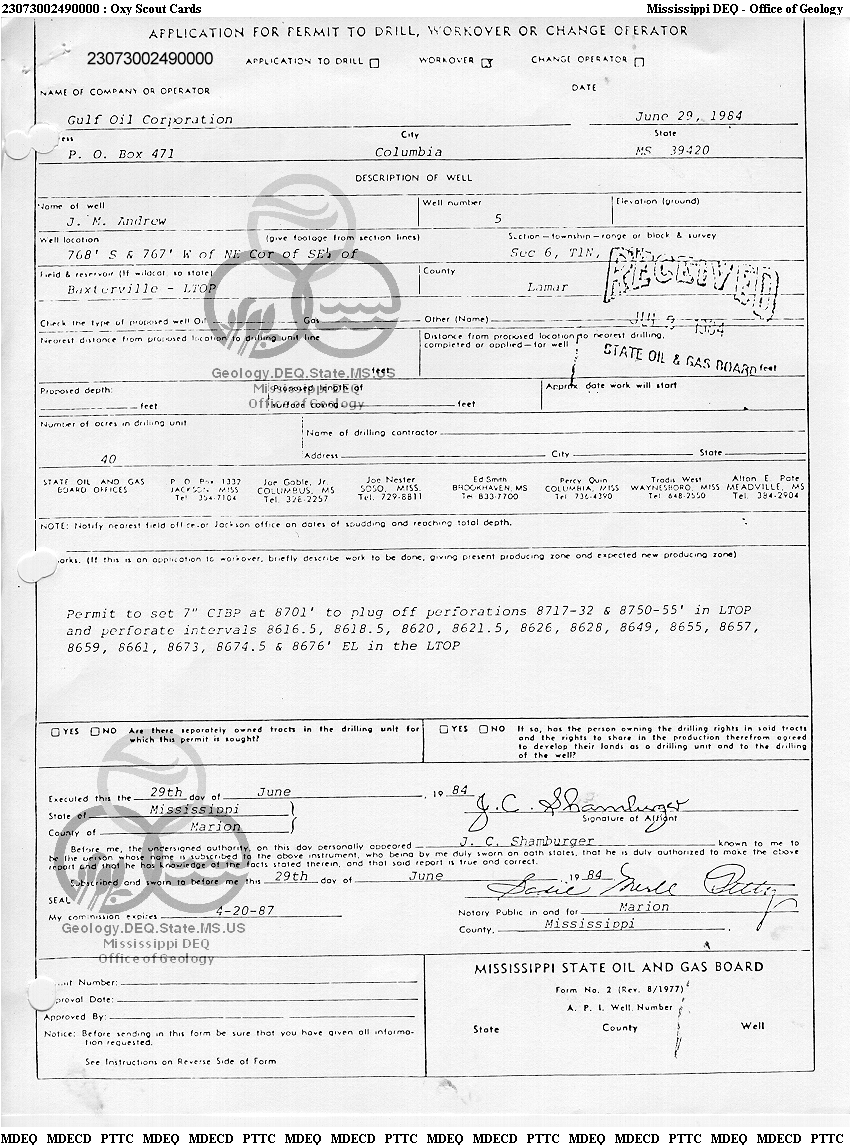 23073002490000 : Oxy Scout Cards Mississippi DEQ - Office of Geology
APPLICATION FOR PERMIT TO DRILL, WORKOVER OR CHANGE OPERATOR
23073002490000 APPLICATION TO DRILL WORKOVER CHANGE OPERATOR
NAME OF COMPANY OR OPERATOR DATE
Gulf Oil Corporation June 29, 1984
City State
P. O. Box 471 Columbia MS 39420
DESCRIPTION OF WELL
Name of well Well number Elevation (ground)
J. M. Andrew 5
Well location (give footage from section lines) Section—township—range or block & survey
768' S & 767' W of NE Cor of SE¼ of Sec 6, T1N,
RECEIVED
Field & reservoir (If wildcat, so state) County
Baxterville - LTOP Lamar
Check the type of proposed well Oil Gas Other (Name)
1984
Nearest distance from proposed location to drilling unit line Distance from proposed location to nearest drilling,
completed or applied—for well
feet STATE OIL & GAS BOARD feet
Geology.DEQ.State.MS.US
Mississippi DEQ
Office of Geology
Proposed depth: Proposed length of Approx date work will start
feet surface casing feet
Number of acres in drilling unit Name of drilling contractor
40 Address City State
STATE OIL AND GAS P O Box 1332 Joe Goble, Jr. Joe Nester Ed Smith Percy Quin Travis West Alton E. Pate
BOARD OFFICES JACKSON, MISS COLUMBUS, MS SOSO, MISS. BROOKHAVEN, MS COLUMBIA, MISS WAYNESBORO, MISS MEADVILLE, MS
Tel 354-7104 Tel. 328-2257 Tel. 729-8811 Tel 833-7700 Tel. 736-4390 Tel 648-2550 Tel. 384-2904
NOTE: Notify nearest field office or Jackson office on dates of spudding and reaching total depth.
arks. (If this is an application to workover, briefly describe work to be done, giving present producing zone and expected new producing zone)
Permit to set 7" CIBP at 8701' to plug off perforations 8717-32 & 8750-55' in LTOP
and perforate intervals 8616.5, 8618.5, 8620, 8621.5, 8626, 8628, 8649, 8655, 8657,
8659, 8661, 8673, 8674.5 & 8676' EL in the LTOP
YES NO Are there separately owned tracts in the drilling unit for
which this permit is sought?
YES NO If so, has the person owning the drilling rights in said tracts
and the rights to share in the production therefrom agreed
to develop their lands as a drilling unit and to the drilling
of the well?
Executed this the 29th day of June, 19 84 J. C. Shamburger
State of Mississippi Signature of Affiant
County of Marion
Before me, the undersigned authority, on this day personally appeared J. C. Shamburger known to me to
be the person whose name is subscribed to the above instrument, who being by me duly sworn on oath states, that he is duly authorized to make the above
report and that he has knowledge of the facts stated therein, and that said report is true and correct.
Subscribed and sworn to before me this 29th day of June, 19 84
SEAL
My commission expires 4-20-87 Notary Public in and for Marion
County, Mississippi
Geology.DEQ.State.MS.US
Mississippi DEQ
Office of Geology
MISSISSIPPI STATE OIL AND GAS BOARD
Form No. 2 (Rev. 8/1977)
A. P. I. Well Number
State County Well
Number:
proval Date:
Approved By:
Notice: Before sending in this form be sure that you have given all informa-
tion requested.
See Instructions on Reverse Side of Form
MDEQ MDECD PTTC MDEQ MDECD PTTC MDEQ MDECD PTTC MDEQ MDECD PTTC MDEQ MDECD PTTC MDEQ MDECD PTTC